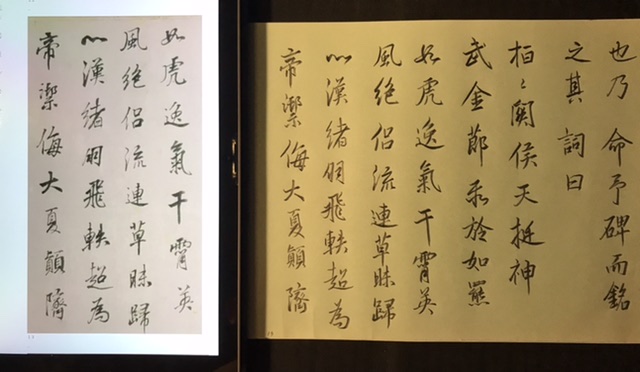 如虎逸氣干霄英
風絕侶流連草昧歸
心漢緒明飛軼超為
帝禦侮大夏顛隮
也乃命予碑而銘
之其詞曰
桓〻關侯天挺神
武金節如羆
如虎逸氣干霄英
風絕侶流連草昧歸
心漢緒明飛軼超為
帝禦侮大夏顛隮